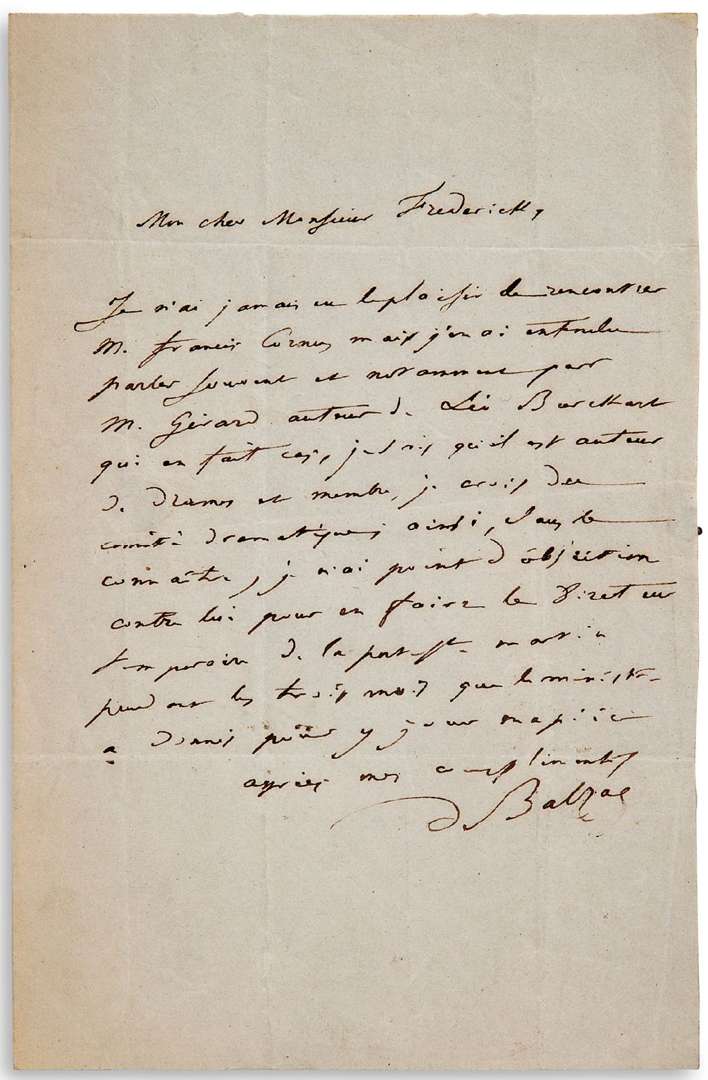 Mon cher Monsieur Frederick,
Je n'ai jamais eu le plaisir de rencontrer
M. Francis Cornu, mais j'en ai entendu
parler souvent et notamment par
M. Gérard auteur de Léo Burckart
qui en fait cas, je sais qu'il est auteur
de drames et membre, je crois du
comité dramatique; ainsi, sans le
connaître, je n'ai point d'objection
contre lui pour en faire le Directeur
temporaire de la porte St martin
pendant les trois mois que le ministre
a donnés pour y jouer ma pièce
agréez mes compliments
de Balzac